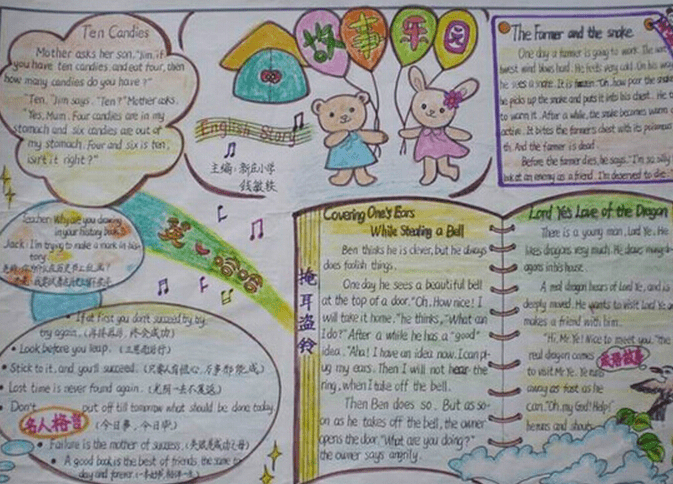 Ten Candies
Mother asks her son, "Jim, if
you have ten candies, and eat four, then
how many candies do you have?"
"Ten," Jim says. "Ten?" Mother asks.
Yes, Mum. Four candies are in my
stomach and six candies are out of
my stomach. Four and six is ten,
isn't it right?"
故事乐园
English Story
主编:新庄小学
钱敏轶
The Farmer and the snake
One day a farmer is going to work. The
west wind blows hard. He feels very cold. On his way
he sees a snake. It is "Oh, how poor the snake
he picks up the snake and puts it into his chest. He t
to warm it. After a while, the snake becomes warm a
active. It bites the farmer's chest with its poisonous
th. And the farmer is dead.
Before the farmer dies, he says, "I'm so silly
look at an enemy as a friend. I'm deserved to die
Teacher: Why are you drawing
in your history book?
Jack: I'm trying to make a mark in his
tory.
英 哈哈
If at first you don't succeed try, try
try again. (再接再厉, 终会成功)
Look before you leap. (三思而后行)
Stick to it, and you'll succeed. (只要人有恒心, 万事都能成)
Lost time is never found again. (光阴一去不复返)
Don't put off till tomorrow what should be done today.
名人格言 (今日事, 今日毕)
Failure is the mother of success. (失败是成功之母)
A good book is the best of friends, the same to
day and forever.
掩耳盗铃
Covering One's Ears
While Stealing a Bell
Ben thinks he is clever, but he always
does foolish things.
One day he sees a beautiful bell
at the top of a door. "Oh, How nice! I
will take it home," he thinks, "What can
I do?" After a while he has a "good"
idea. "Aha! I have an idea now. I can pl-
ug my ears. Then I will not hear the
ring, when I take off the bell.
Then Ben does so. But as so-
on as he takes off the bell, the owner
opens the door. "What are you doing?"
the owner says angrily.
Lord Ye's Love of the Dragon
There is a young man, Lord Ye. He
likes dragons very much. He draws many dr-
agons in his house.
A real dragon hears of Lord Ye, and is
deeply moved. He wants to visit Lord Ye an
makes a friend with him.
"Hi, Mr Ye! Nice to meet you," the
real dragon comes 成语故事
to visit Mr Ye. Ye runs
away as fast as he
can. "Oh, my God! Help!"
he runs and shouts.